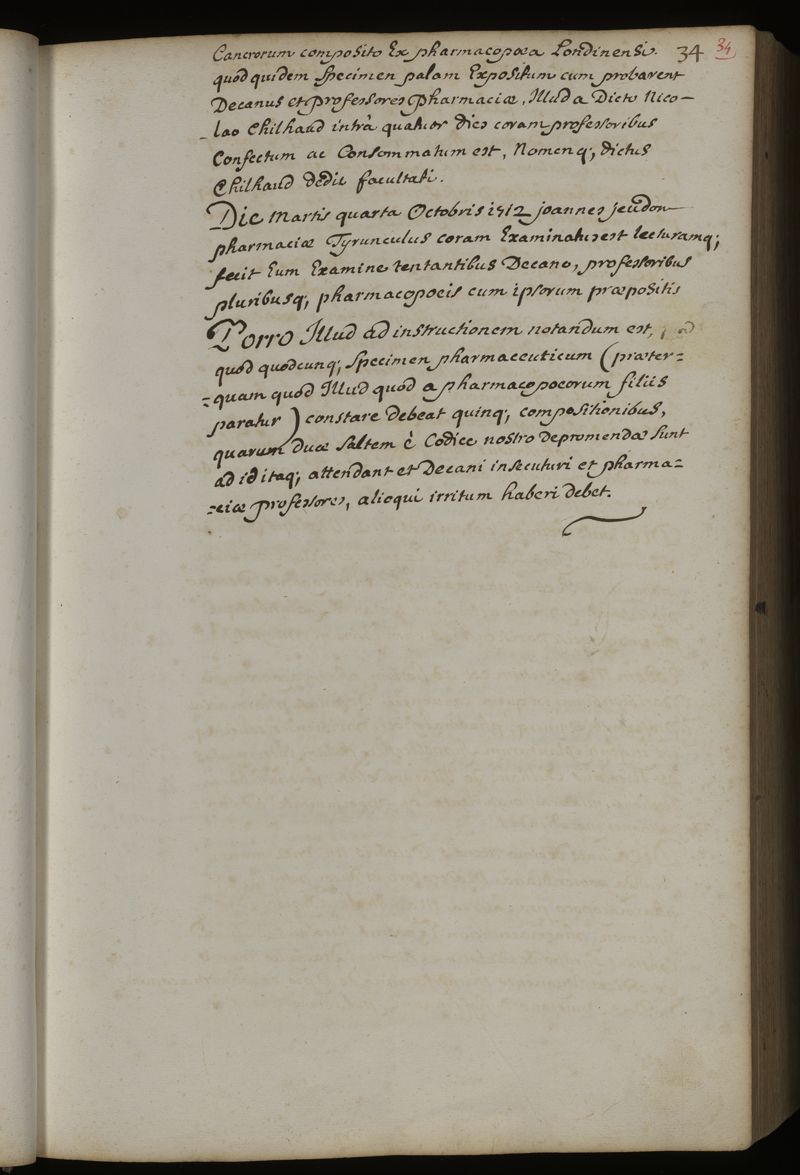 Cancrorum composito Ex pharmacopoea Londinensi. 34 34
quod quidem specimen palam Expositum cum probarent
Decanus et professores pharmaciæ, Illud a Dicto Nico–
lao Chilhaud intrà quatuor dies coram professoribus
Confectum ac Consommatum est, Nomenq; dictus
Chilhaud dedit facultati.
Die Martis quarta Octobris 1712 joannes jeudon
pharmaciæ Tyrunculus coram Examinatus est lecturamq;
fecit Eum Examine tentantibus Decano, professoribus
pluribusq; pharmacopoeis cum ipsorum præpositis
Porro Illud ad instructionem notandum est,
quòd quodcunq; specimen pharmaceuticum (præter=
=quam quòd Illud quòd a pharmacopoeorum filiis
paratur) constare debeat quinq; compositionibus,
quarum duæ saltem è Codice nostro depromendæ sunt
ad id itaq; attendant et Decani insecuturi et pharma=
=ciæ professores, alioqui irritum haberi debet.